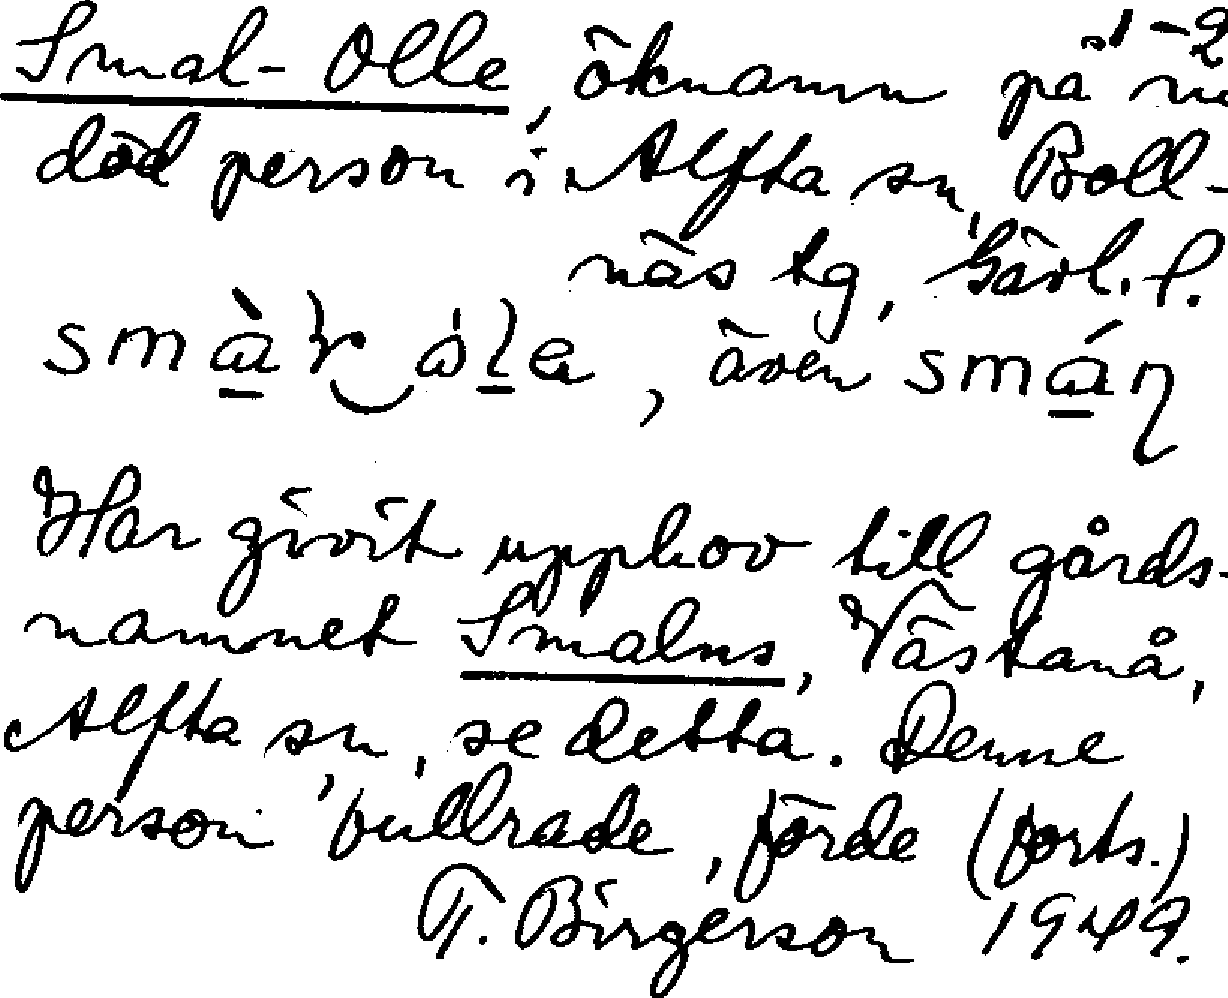 s. 1-2
Smal-Olle, öknamn på nu
död person i Alfta sn, Boll-
näs tg, Gävl. l.
även
Har givit upphov till gårds-
namnet Smalns, Västanå,
Alfta sn, se detta. Denne
person bullrade, förde (forts.)
T. Birgerson 1949.